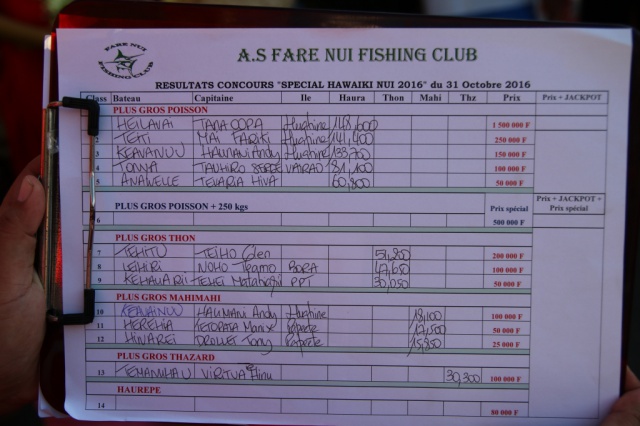 FARE NUI
FISHING CLUB
A.S FARE NUI FISHING CLUB
RESULTATS CONCOURS "SPECIAL HAWAIKI NUI 2016" du 31 Octobre 2016
Class Bateau Capitaine Ile Haura Thon Mahi Thz Prix Prix + JACKPOT
PLUS GROS POISSON
HEILAVAI TANA OOPA Huahine 148,600 1 500 000 F
2 TEITI MAI FARIKI Huahine 141,400 250 000 F
3 KEAVANUU HAUMANI Andy Huahine 133,700 150 000 F
4 TONYA TAUHIRO VAIRAO 81,100 100 000 F
5 ANAWELLE TEVARIA HIVA 60,800 50 000 F
PLUS GROS POISSON + 250 kgs Prix spécial Prix + JACKPOT + Prix spécial
6 500 000 F
PLUS GROS THON
7 TEHITU TEIHO Glen 51,200 200 000 F
8 LEIHIRI NOHO Teamo BORA 47,650 100 000 F
9 KEHAUARII TEHEI PPT 30,050 50 000 F
PLUS GROS MAHIMAHI
10 KEAVAINUU HAUMANI Andy Huahine 18,100 100 000 F
11 HEREHIA Papeete 17,500 50 000 F
12 HINAREI DROLLET Tony Papeete 15,850 25 000 F
PLUS GROS THAZARD
13 VIRITUA 30,300 100 000 F
HAUREPE
14 80 000 F